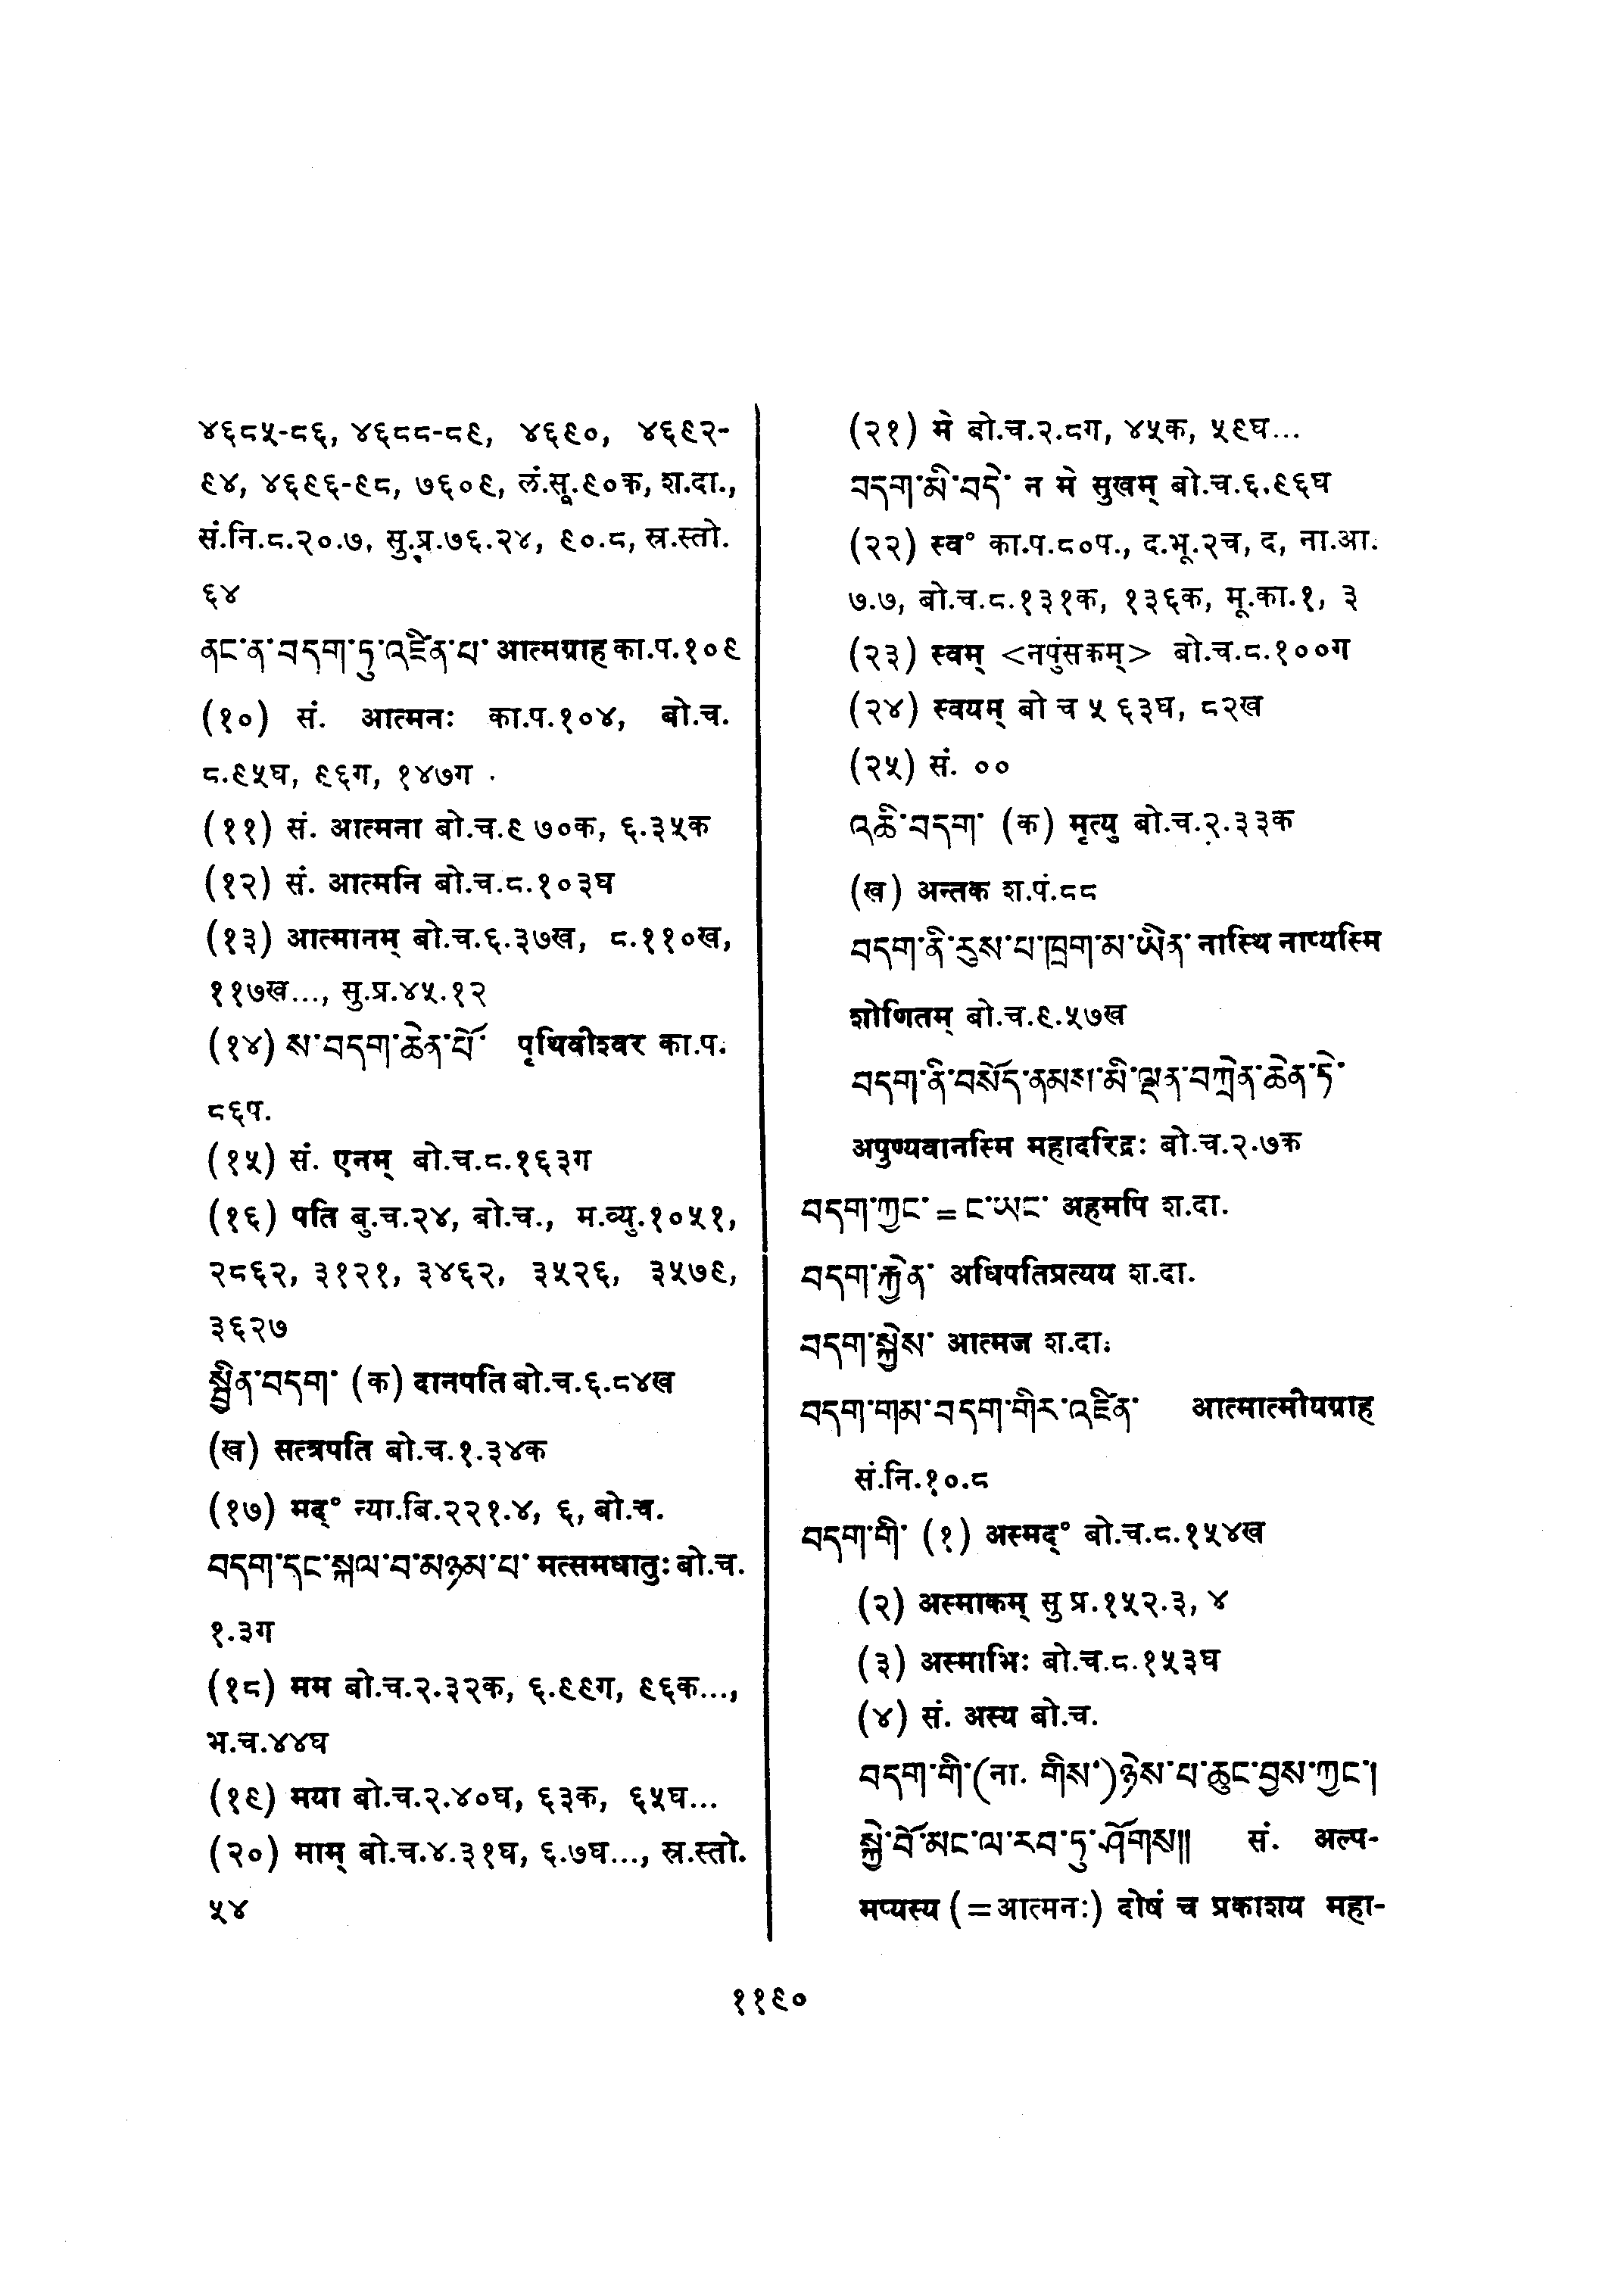 ४६८५-८६, ४६८८-८९, ४६९०, ४६९२-
९४, ४६९६-९८, ७६०९, लं.सू.९०क, श.दा.,
सं.नि.८.२०.७, सु.प्र.७६.२४, ९०.८, स्र.स्तो.
६४
ནང་ན་བདག་ཏུ་འཛིན་པ་ आत्मग्राह का.प.१०९
(१०) सं. आत्मनः का.प.१०४, बो.च.
८.९५घ, ९६ग, १४७ग .
(११) सं. आत्मना बो.च.९ ७०क, ६.३५क
(१२) सं. आत्मनि बो.च.८.१०३घ
(१३) आत्मानम् बो.च.६.३७ख, ८.११०ख,
११७ख..., सु.प्र.४५.१२
(१४) ས་བདག་ཆེན་པོ་ पृथिवीश्वर का.प.
८६प.
(१५) सं. एनम् बो.च.८.१६३ग
(१६) पति बु.च.२४, बो.च., म.व्यु.१०५१,
२८६२, ३१२१, ३४६२, ३५२६, ३५७९,
३६२७
སྦྱིན་བདག་ (क) दानपति बो.च.६.८४ख
(ख) सत्त्रपति बो.च.१.३४क
(१७) मद्° न्या.बि.२२१.४, ६, बो.च.
བདག་དང་སྐལ་བ་མཉམ་པ་ मत्समधातुः बो.च.
१.३ग
(१८) मम बो.च.२.३२क, ६.९९ग, ९६क...,
भ.च.४४घ
(१९) मया बो.च.२.४०घ, ६३क, ६५घ...
(२०) माम् बो.च.४.३१घ, ६.७घ..., स्र.स्तो.
५४
(२१) मे बो.च.२.८ग, ४५क, ५९घ...
བདག་མི་བདེ་ न मे सुखम् बो.च.६.९६घ
(२२) स्व° का.प.८०प., द.भू.२च, द, ना.आ.
७.७, बो.च.८.१३१क, १३६क, मू.का.१, ३
(२३) स्वम् <नपुंसकम्> बो.च.८.१००ग
(२४) स्वयम् बो च ५ ६३घ, ८२ख
(२५) सं. ००
འཆི་བདག་ (क) मृत्यु बो.च.२.३३क
(ख) अन्तक श.पं.८८
བདག་ནི་རུས་པ་ཁྲག་མ་ཡིན་ नास्थि नाप्यस्मि
शोणितम् बो.च.९.५७ख
བདག་ནི་བསོད་ནམས་མི་ལྡན་བཀྲེན་ཆེན་ཏེ་
अपुण्यवानस्मि महादरिद्रः बो.च.२.७क
བདག་ཀྱང་ = ང་ཡང་ अहमपि श.दा.
བདག་རྐྱེན་ अधिपतिप्रत्यय श.दा.
བདག་སྐྱེས་ आत्मज श.दा.
བདག་གམ་བདག་གིར་འཛིན་ आत्मात्मीयग्राह
सं.नि.१०.८
བདག་གི་ (१) अस्मद्° बो.च.८.१५४ख
(२) अस्माकम् सु प्र.१५२.३, ४
(३) अस्माभिः बो.च.८.१५३घ
(४) सं. अस्य बो.च.
བདག་གི་(ना. གིས་)ཉེས་པ་ཆུང་བྱས་ཀྱང་།
སྐྱེ་བོ་མང་ལ་རབ་ཏུ་ཤོགས།། सं. अल्प-
मप्यस्य (=आत्मनः) दोषं च प्रकाशय महा-
११९०